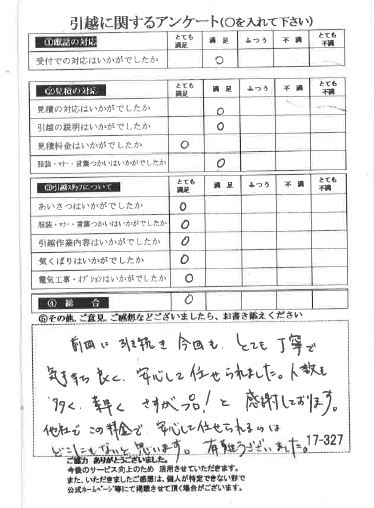 引越に関するアンケート(○を入れて下さい)
①電話の対応 とても満足 満足 ふつう 不満 とても不満
受付での対応はいかがでしたか ○
②見積の対応 とても満足 満足 ふつう 不満 とても不満
見積の対応はいかがでしたか ○
引越の説明はいかがでしたか ○
見積料金はいかがでしたか ○
服装・マナー・言葉つかいはいかがでしたか ○
③引越スタッフについて とても満足 満足 ふつう 不満 とても不満
あいさつはいかがでしたか ○
服装・マナー・言葉つかいはいかがでしたか ○
引越作業内容はいかがでしたか ○
気くばりはいかがでしたか ○
電気工事・オプションはいかがでしたか ○
④ 総 合 ○
⑤その他、ご意見、ご感想などございましたら、お書き添えください
前回に引き続き今回も、とても丁寧で
気持ち良く、安心して任せられました。人数も
多く、素早く さすがプロ!と 感謝しております。
他社でこの料金で、安心して任せられるのは
どこにもないと思います。有難うございました。
17-327
ご協力 ありがとうございました。
今後のサービス向上のため 活用させていただきます。
また、いただきましたご感想は、個人が特定できない形で
公式ホームページ等にて掲載させて頂く場合がございます。